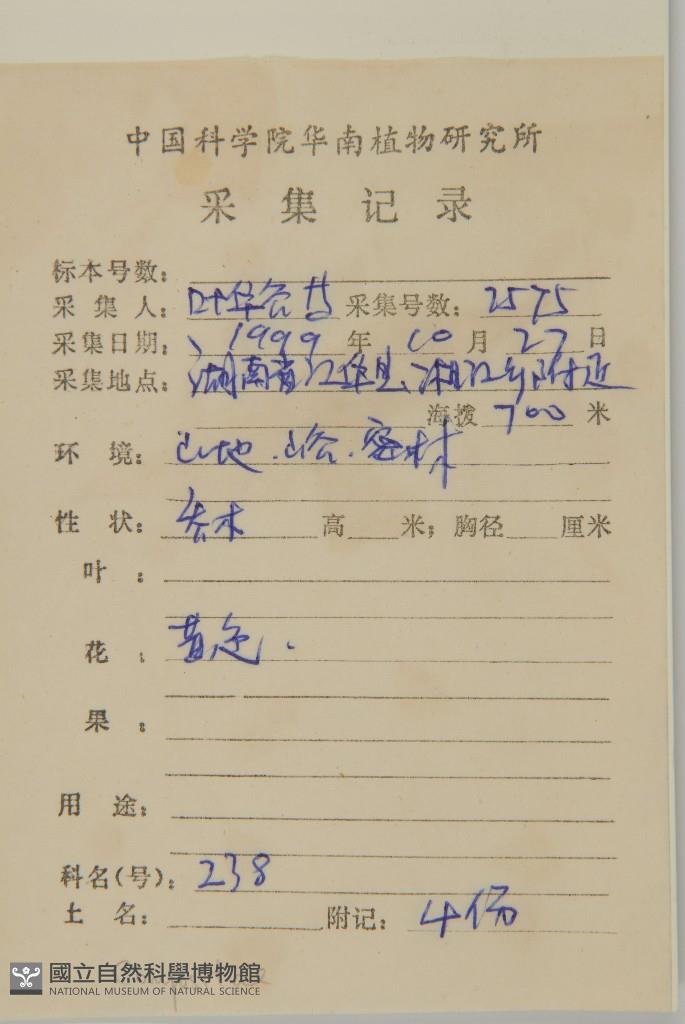 中国科学院华南植物研究所
采集记录
标本号数：
采集人：叶华谷 采集号数：2575
采集日期：1999年10月27日
采集地点：湖南省江华县 湘江乡附近
海拨 700 米
环境：山地.山谷.密林
性状：乔木 高 米；胸径 厘米
叶：
花：黄色.
果：
用途：
科名(号)：238
土名： 附记：4份
國立自然科學博物館
NATIONAL MUSEUM OF NATURAL SCIENCE